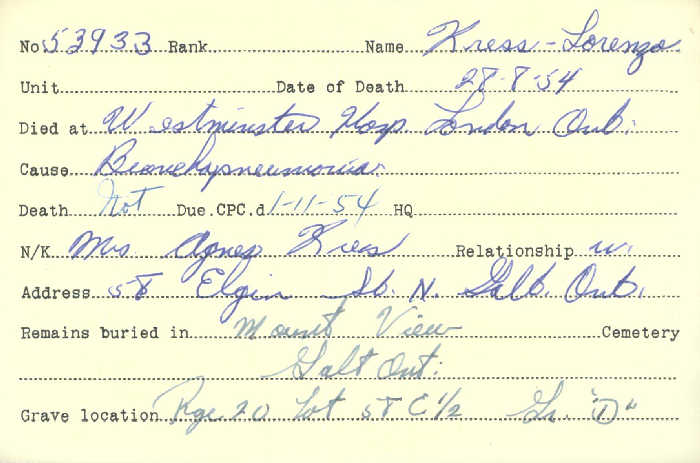 No. 53933 Rank Name Kress - Lorenzo
Unit Date of Death 28-8-54
Died at Westminster Hosp London Ont.
Cause Bronchopneumonia.
Death Not Due.CPC.d 1-11-54 HQ
N/K Mrs Agnes Kress Relationship w.
Address 58 Elgin St. N. Galt. Ont.
Remains buried in Mount View Cemetery
Galt Ont:
Grave location Rge. 20 Lot 58 C 1/2 Gr. "D"